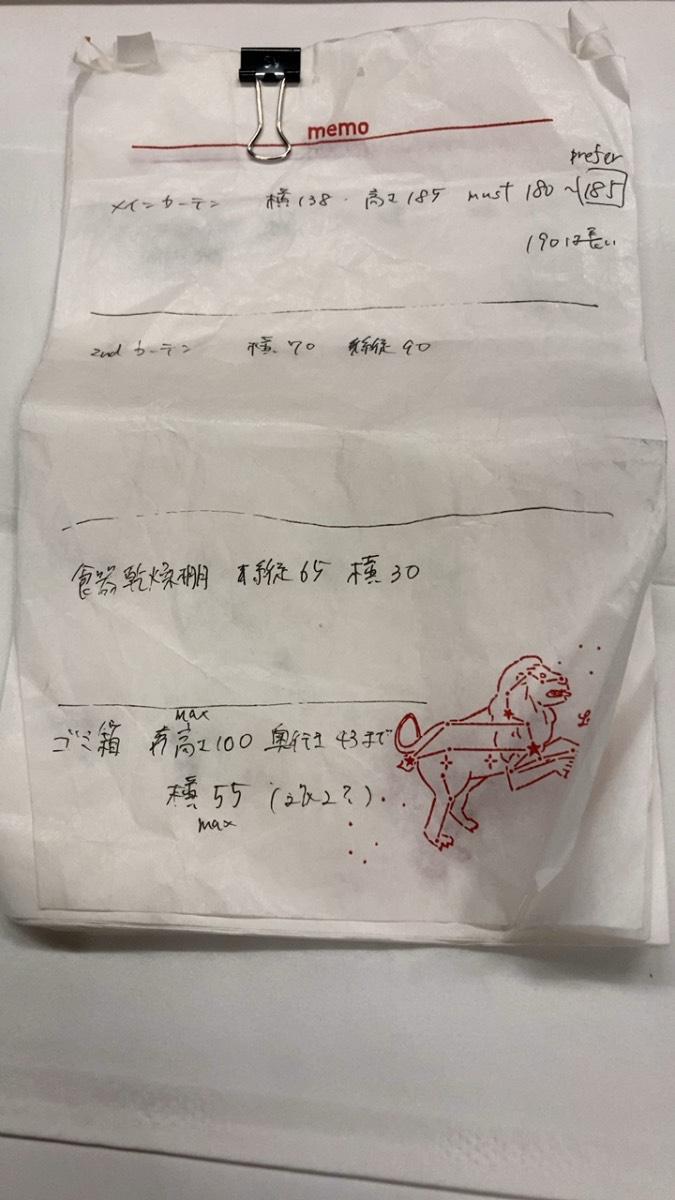 memo
prefer
メインカーテン 横138 . 高さ185 must 180~185
190は長い
2nd カーテン 横 70 縦 90
食器乾燥棚 縦 65 横 30
max
ゴミ箱 高さ100 奥行き 43まで
横 55
max